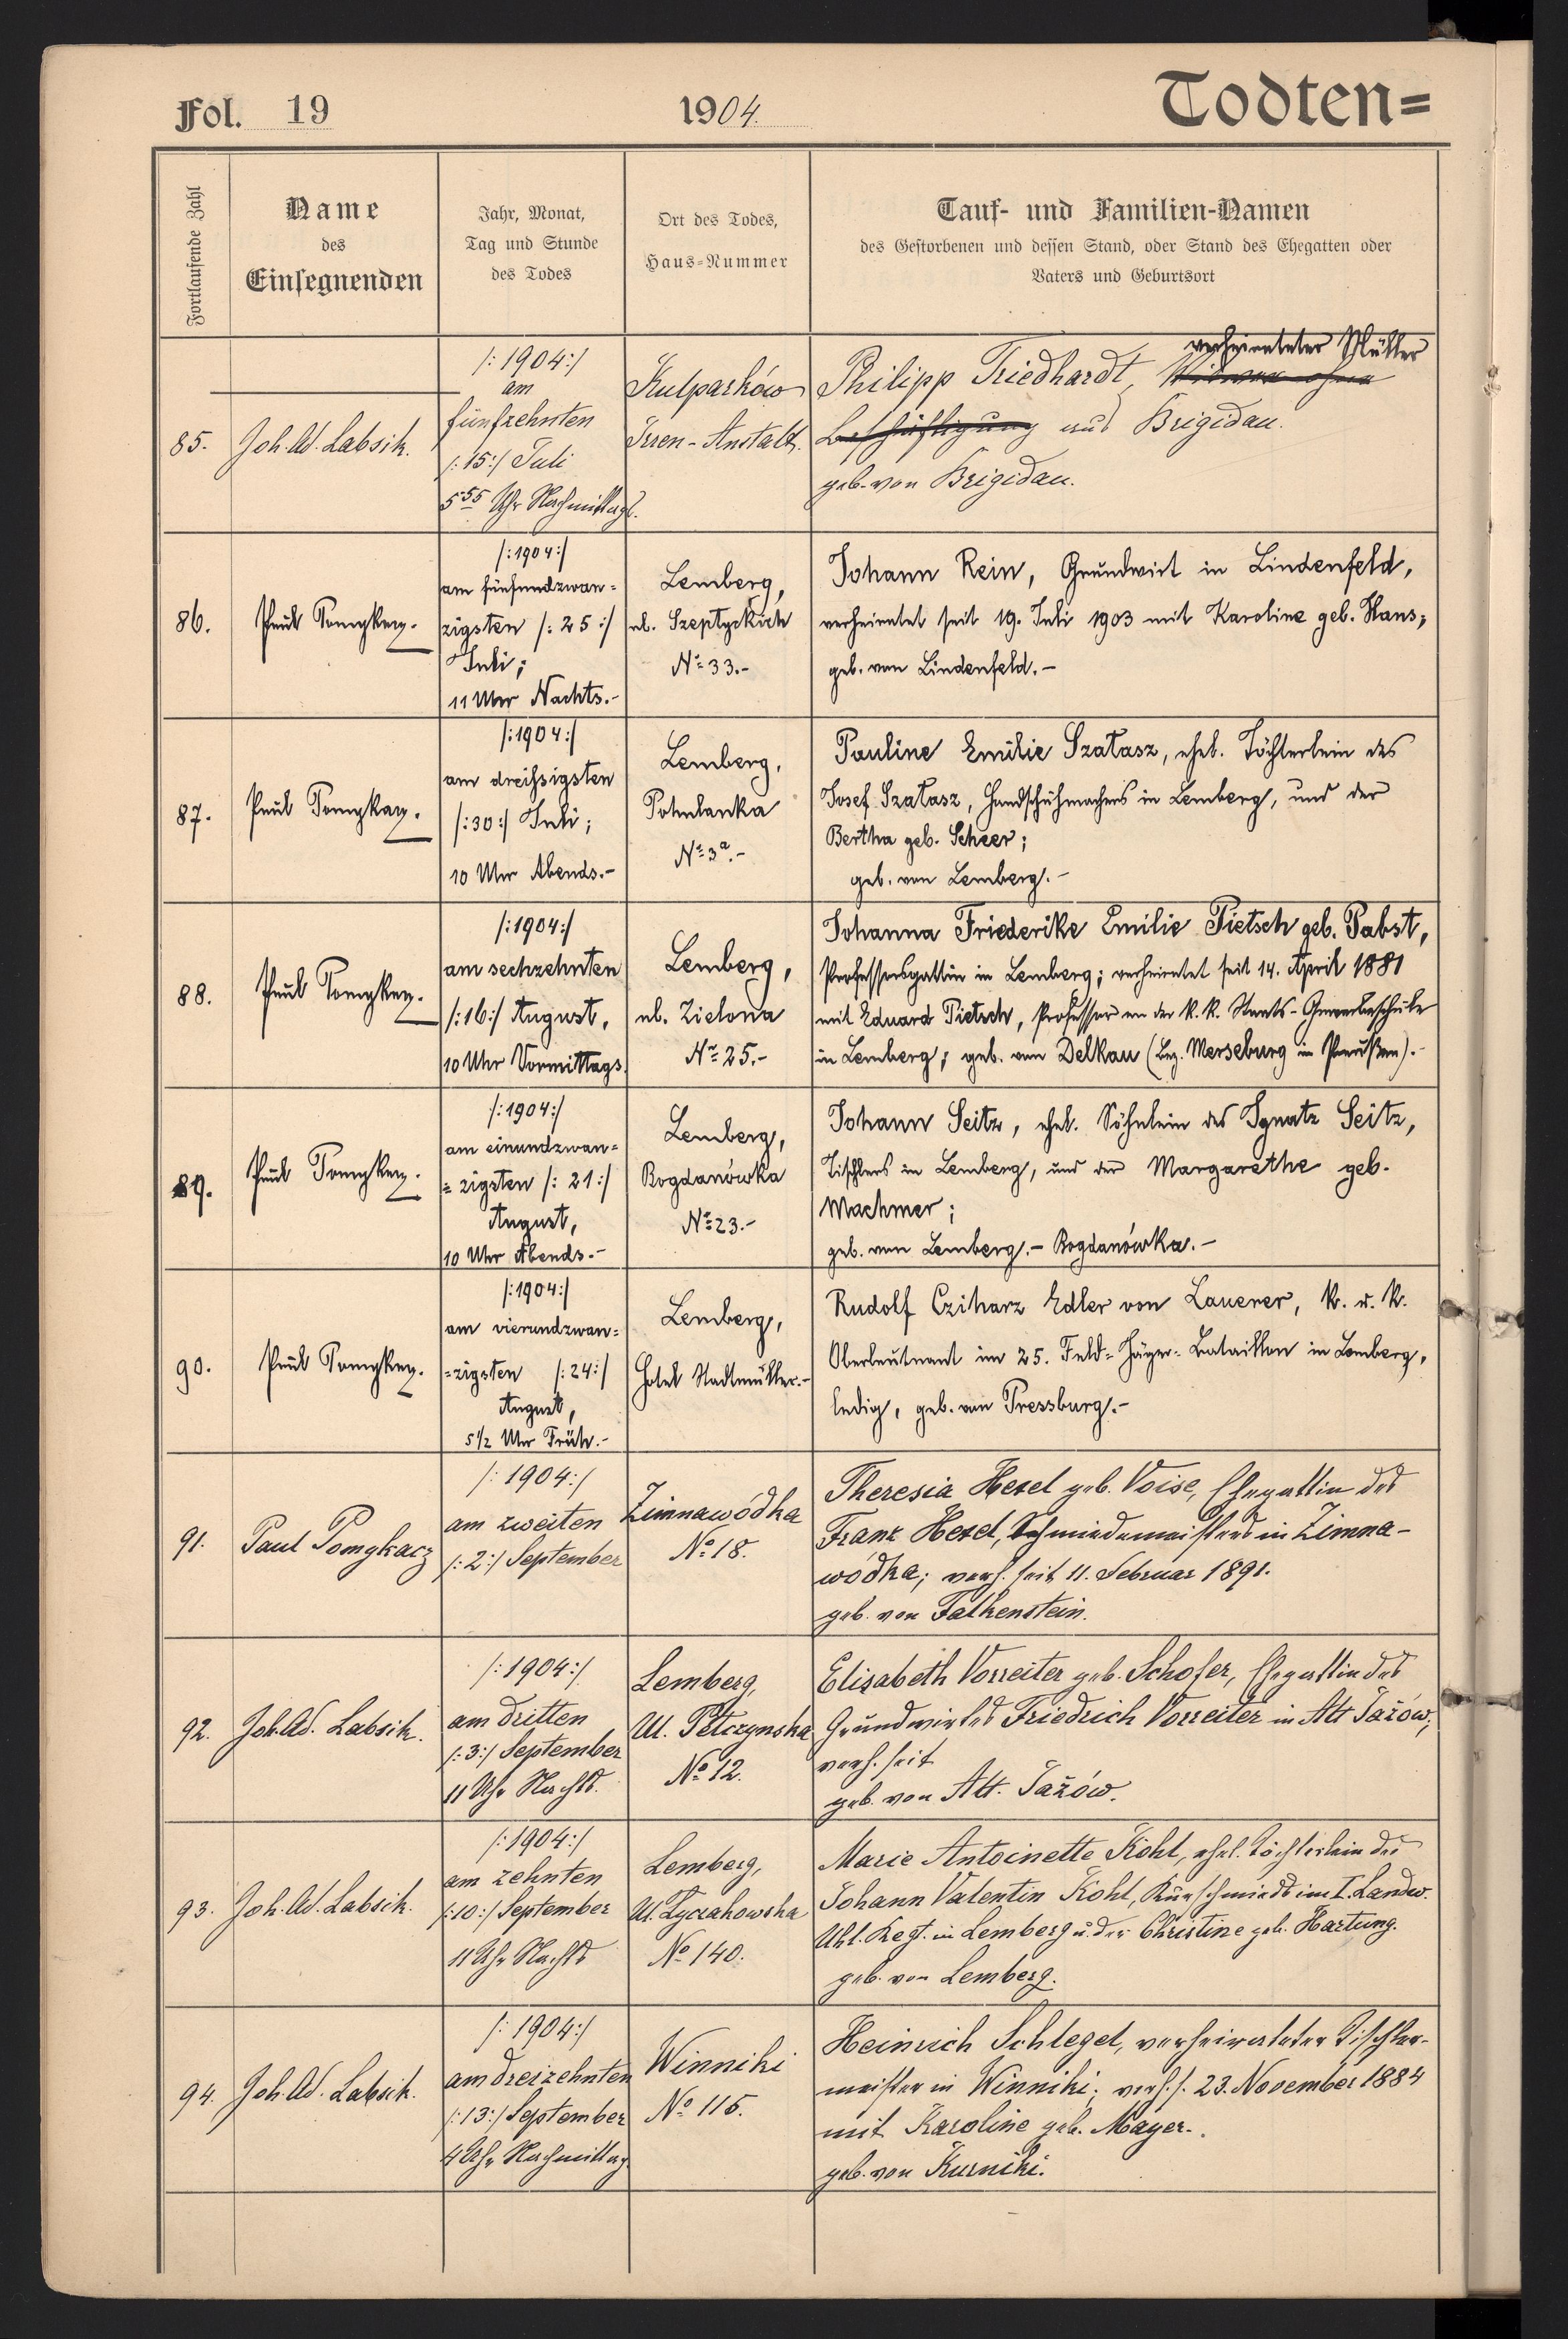 Fol. 19
1904.
Todten=
Fortlaufende Zahl
Name
des
Einsegnenden
Jahr, Monat,
Tag und Stunde
des Todes
Ort des Todes,
Haus-Nummer
Tauf- und Familien-Namen
des Gestorbenen und dessen Stand, oder Stand des Ehegatten oder
Vaters und Geburtsort
85.
Joh. Ad. Labsik.
/: 1904 :/
am
fünfzehnten
/: 15 :/ Juli
5 55 Uhr Nachmittags.
Kulparków
Irren-Anstalt.
verheirateter Müller
Philipp Friedhardt, Witwer ohne
Beschäftigung aus Brigidau.
geb. von Brigidau.
86.
Paul Pomykacz.
/: 1904 :/
am fünfundzwan=
zigsten /: 25 :/
Juli;
11 Uhr Nachts.-
Lemberg,
ul. Szeptyckich
No 33.-
Johann Rein, Grundwirt in Lindenfeld,
verheiratet seit 19. Juli 1903 mit Karoline geb. Hans;
geb. von Lindenfeld.-
87.
Paul Pomykacz.
/: 1904 :/
am dreißigsten
/: 30 :/ Juli;
10 Uhr Abends.-
Lemberg,
Pohulanka
No 3a.-
Pauline Emilie Szałasz, ehel. Töchterlein des
Josef Szałasz, Handschuhmachers in Lemberg, und der
Bertha geb. Scheer;
geb. von Lemberg.-
88.
Paul Pomykacz.
/: 1904 :/
am sechzehnten
/: 16 :/ August,
10 Uhr Vormittags.
Lemberg,
ul. Zielona
No 25.-
Johanna Friederike Emilie Pietsch geb. Pabst,
Professorsgattin in Lemberg; verheiratet seit 14. April 1881
mit Eduard Pietsch, Professor an der k. k. Staats-Gewerbeschule
in Lemberg; geb. von Delkau (Bez. Merseburg in Preußen).-
89.
Paul Pomykacz.
/: 1904 :/
am einundzwan=
=zigsten /: 21 :/
August,
10 Uhr Abends.-
Lemberg,
Bogdanówka
No 23.-
Johann Seitz, ehel. Söhnlein des Ignatz Seitz,
Tischlers in Lemberg, und der Margarethe geb.
Machmer;
geb. von Lemberg.- Bogdanówka.-
90.
Paul Pomykacz.
/: 1904 :/
am vierundzwan=
=zigsten /: 24 :/
August,
5 1/2 Uhr Früh.-
Lemberg,
Hotel Stadtmüller.-
Rudolf Cziharz Edler von Lauerer, k. u. k.
Oberleutnant im 25. Feld-Jäger-Bataillon in Lemberg,
ledig, geb. von Pressburg.-
91.
Paul Pomykacz
/: 1904 :/
am zweiten
/: 2 :/ September
Zimnawódka
No 18.
Theresia Hexel geb. Voise, Ehegattin des
Franz Hexel, Schmiedemeisters in Zimna-
wódka; verh. seit 11. Februar 1891.
geb. von Falkenstein.
92.
Joh. Ad. Labsik.
/: 1904 :/
am dritten
/: 3 :/ September
11 Uhr Nachts.
Lemberg,
Ul. Pełczynska
No 12.
Elisabeth Vorreiter geb. Schofer, Ehegattin des
Grundwirtes Friedrich Vorreiter in Alt Jażów,
verh. seit
geb. von Alt-Jażów.
93.
Joh. Ad. Labsik.
/: 1904 :/
am zehnten
/: 10 :/ September
11 Uhr Nachts
Lemberg,
Ul. Łyczakowska
No 140.
Marie Antoinette Kohl, ehel. Töchterlein des
Johann Valentin Kohl, Kurschmieds im I. Landw.
Uhl. Regt. in Lemberg u. der Christine geb. Hartung.
geb. von Lemberg.
94.
Joh. Ad. Labsik.
/: 1904 :/
am dreizehnten
/: 13 :/ September
4 Uhr Nachmittag.
Winniki
No 115.
Heinrich Schlegel, verheirateter Tischler-
meister in Winniki; verh. s. 23. November 1884
mit Karoline geb. Mayer.
geb. von Kurniki.